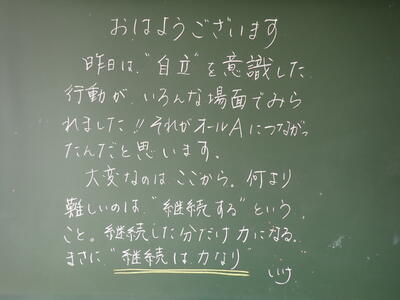 おはようございます
昨日は、"自立"を意識した
行動が、いろんな場面でみら
れました!!それがオールAにつながっ
たんだと思います。
大変なのはここから。何より
難しいのは、"継続する"という
こと。継続した分だけ力になる。
まさに"継続は力なり"